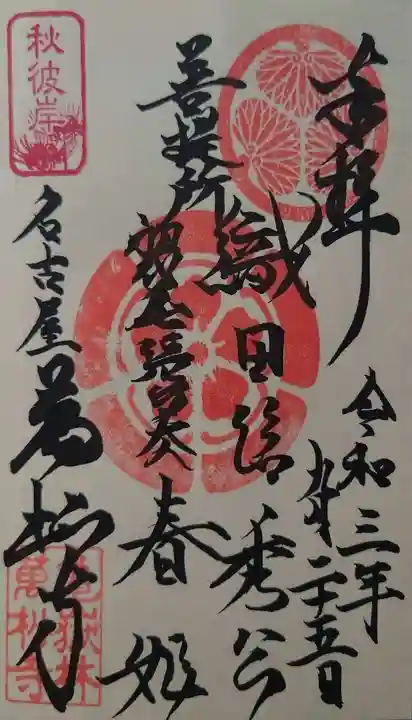 奉拝
令和三年
九月二十五日
織田信秀公
菩提所
春姫
名古屋 萬松寺
秋彼岸
亀嶽林
萬松寺